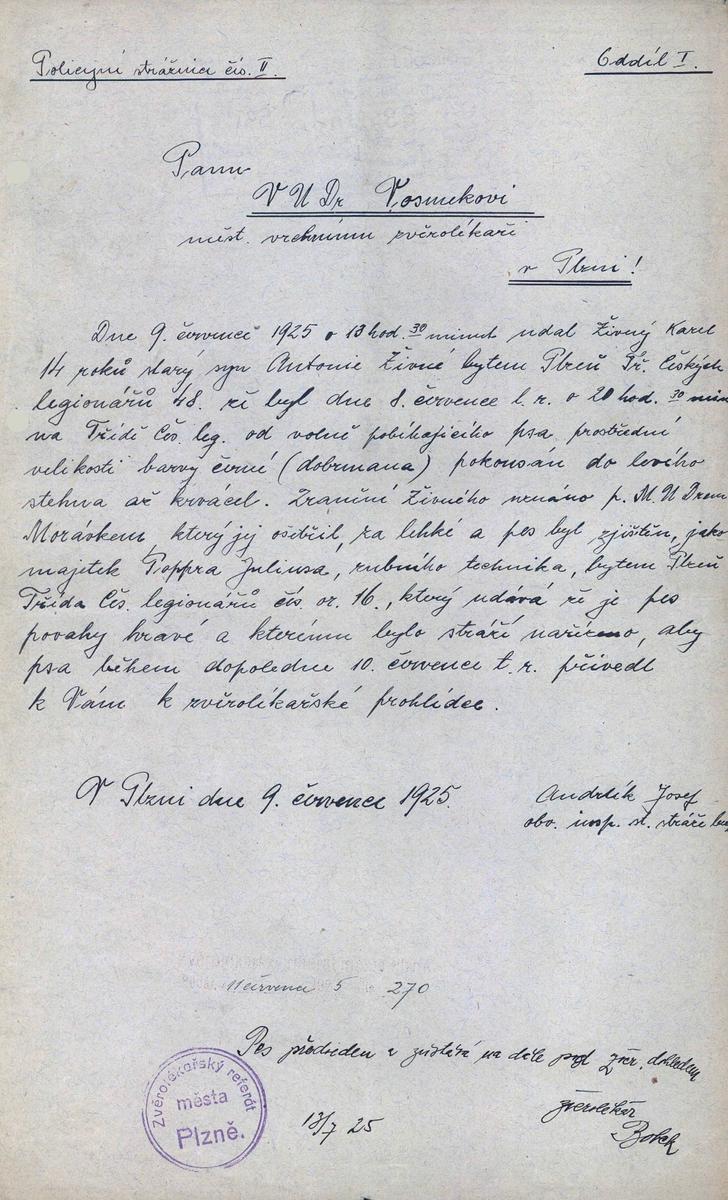 Policejní strážnice čís. II.
Oddíl I.
Panu
V U Dr Vosmekovi
měst. vrchnímu zvěrolékaři
v Plzni!
Dne 9. července 1925 o 13 hod. 30 minut udal Živný Karel
14 roků starý syn Antonie Živné bytem Plzeň Tř. Českých
legionářů 48. že byl dne 8. července t. r. o 20 hod. 30 min
na Třídě Čes. leg. od volně pobíhajícího psa prostřední
velikosti barvy černé (dobrmana) pokousán do levého
stehna až krvácel. Zranění Živného uznáno p. M. U Drem
Moráskem, který jej ošetřil, za lehké a pes byl zjištěn, jako
majetek Poppra Juliusa, zubního technika, bytem Plzeň
Třída Čes. legionářů čís. or. 16., který udává že je pes
povahy hravé a kterému bylo stráží nařízeno, aby
psa během dopoledne 10. července t. r. přivedl
k Vám k zvěrolékařské prohlídce.
V Plzni dne 9. července 1925.
Andrlík Josef
obv. insp. st. stráže
11 července 5 270
Pes předveden a zůstává na dále pod zvěr. dohledem
zvěrolékař
13/7 25
Zvěrolékařský referát
města
Plzně.